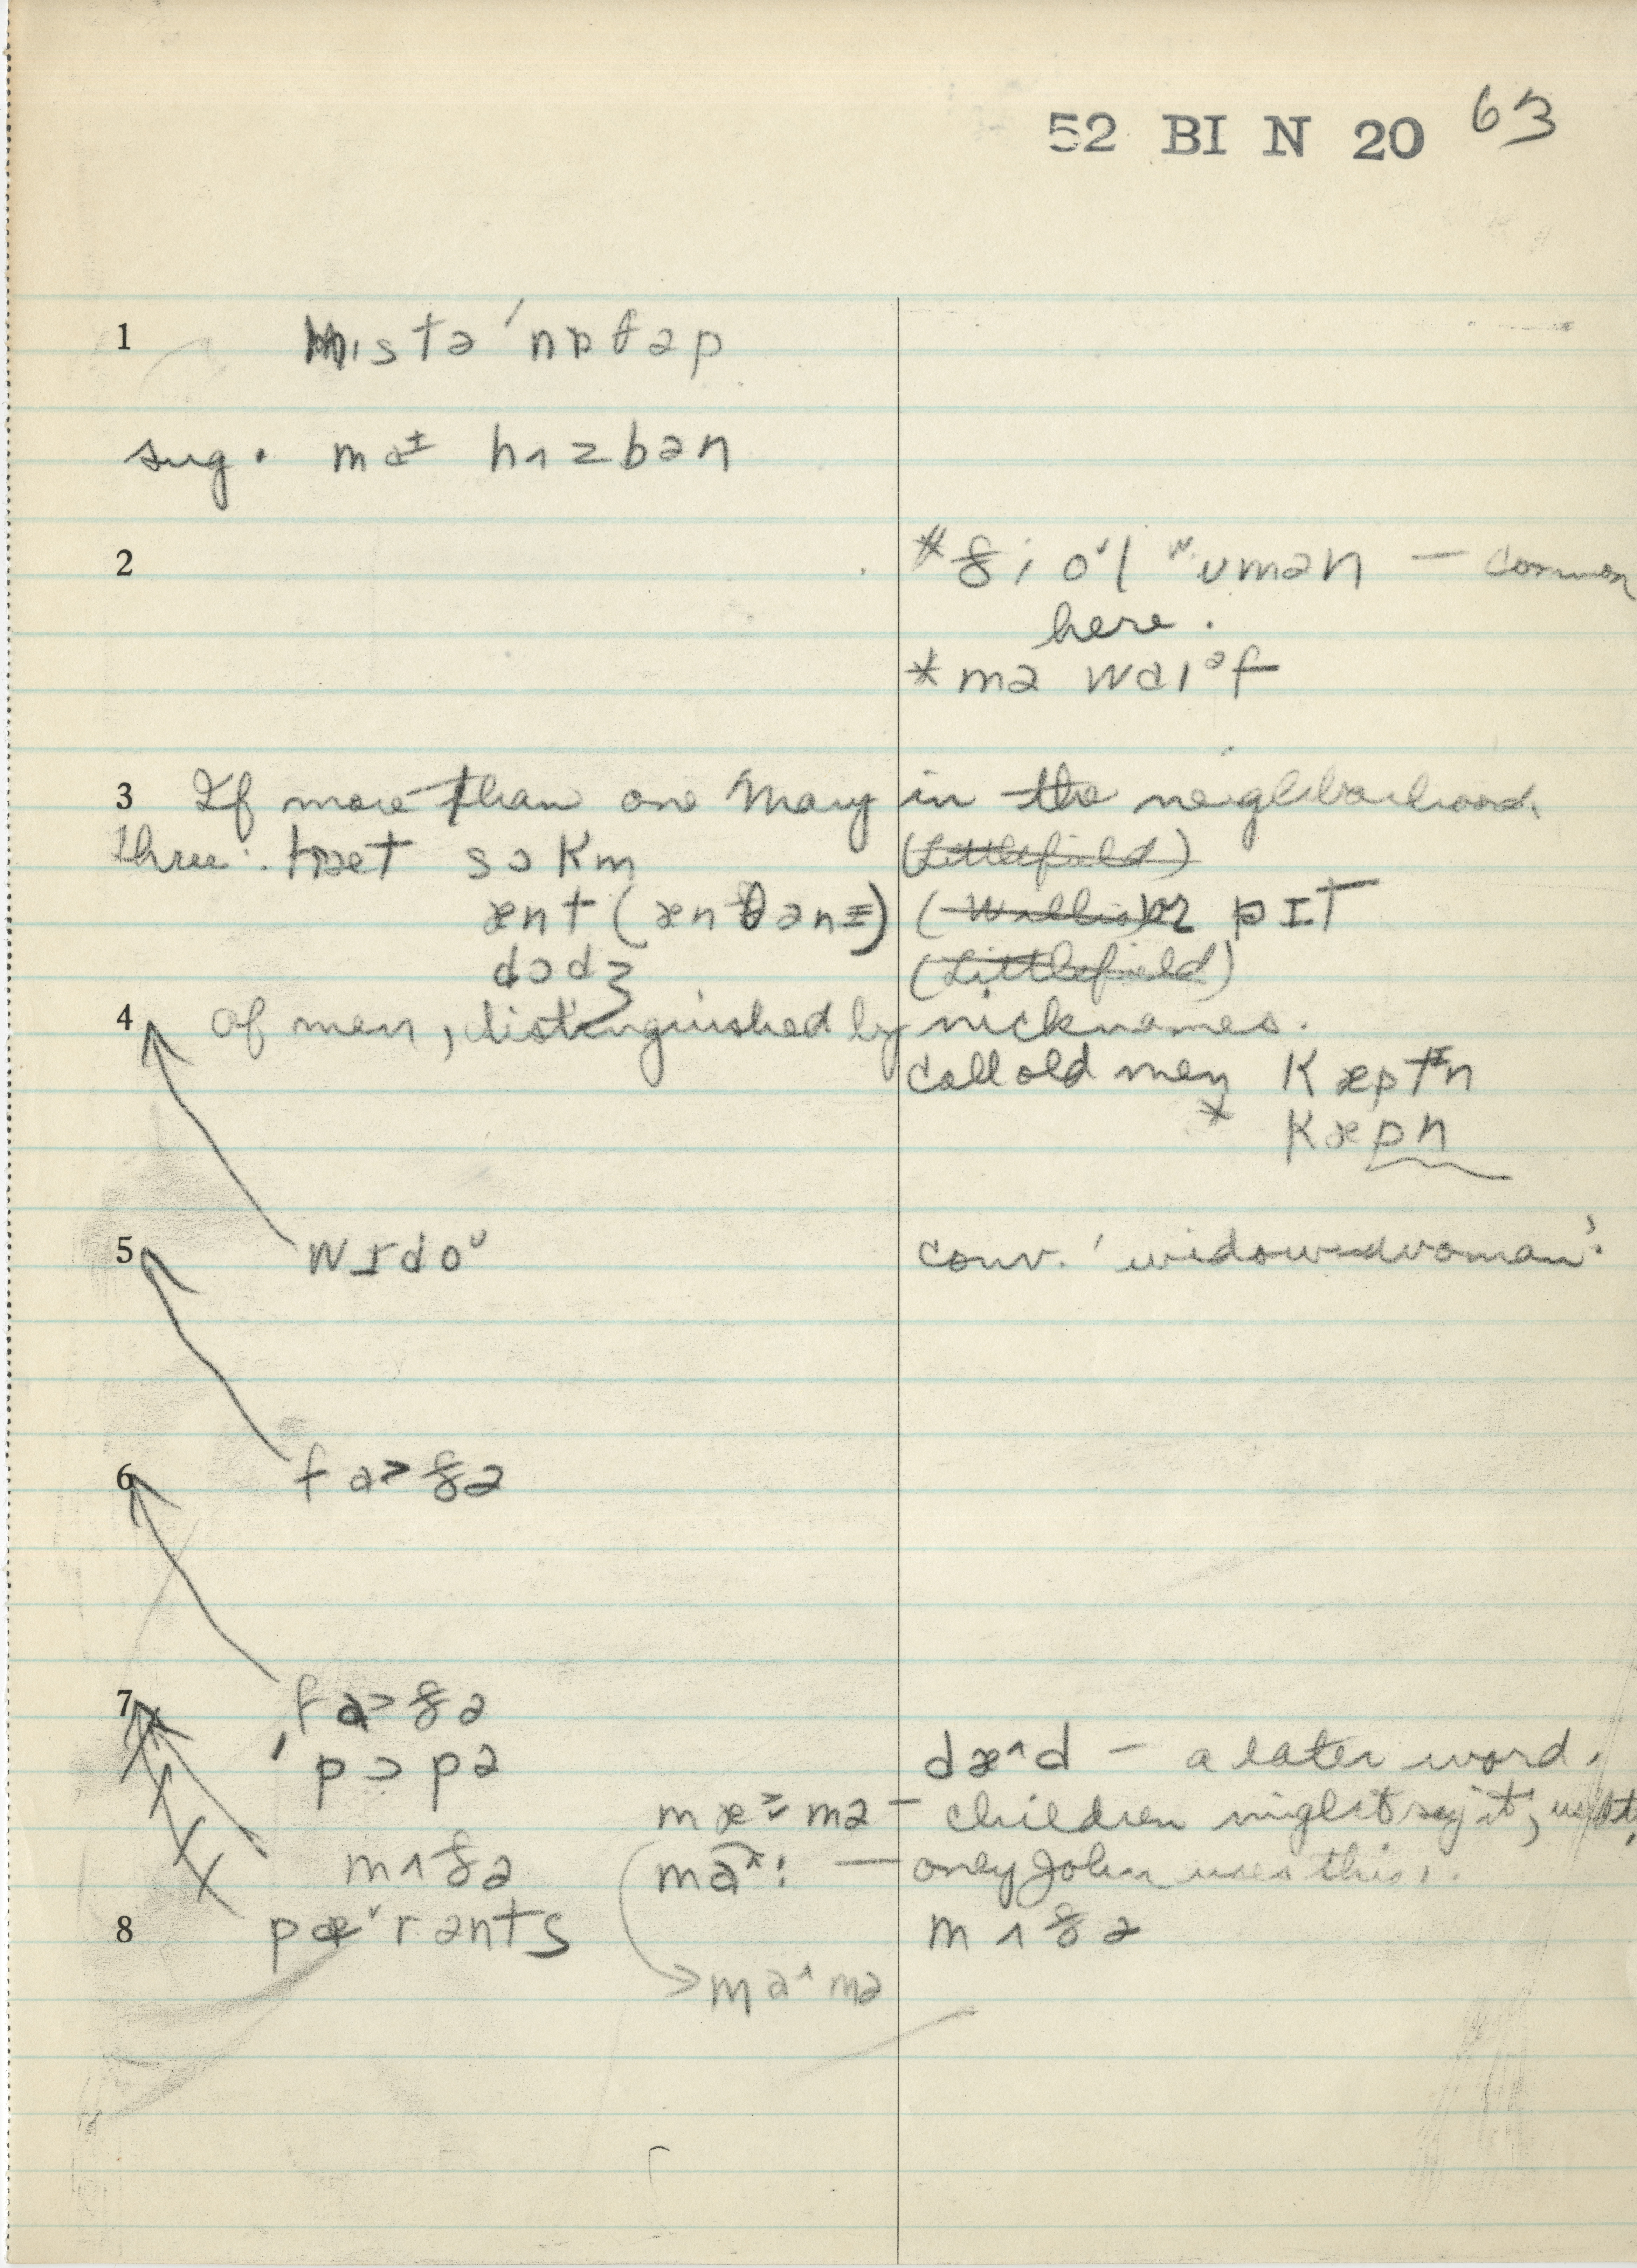 52 BI N 20 63
1 mɪstə ˈnɒθəp
sug. ma± hʌzbən
2 *ði oᵛl ʷʊmən — common
here.
*mə waɪᵊf
3 If more than one Mary in the neighborhood.
three: sɔkm (Littlefield)
ænt (ænθənɪ) (Wallis) or pɪt
dɔdʒ (Littlefield)
4 of men, distinguished by nicknames.
call old men kæptɪn
* kæpn
5 wɪdoᵁ conv. 'widowed woman'.
6 fa>ðə
7 fa>ðə
ˈpɔpə dæ^d — a later word.
mæmə — children might say it,
mʌðə ma^: — only John uses this.
8 pæᵛrənts mʌðə
ma^mə